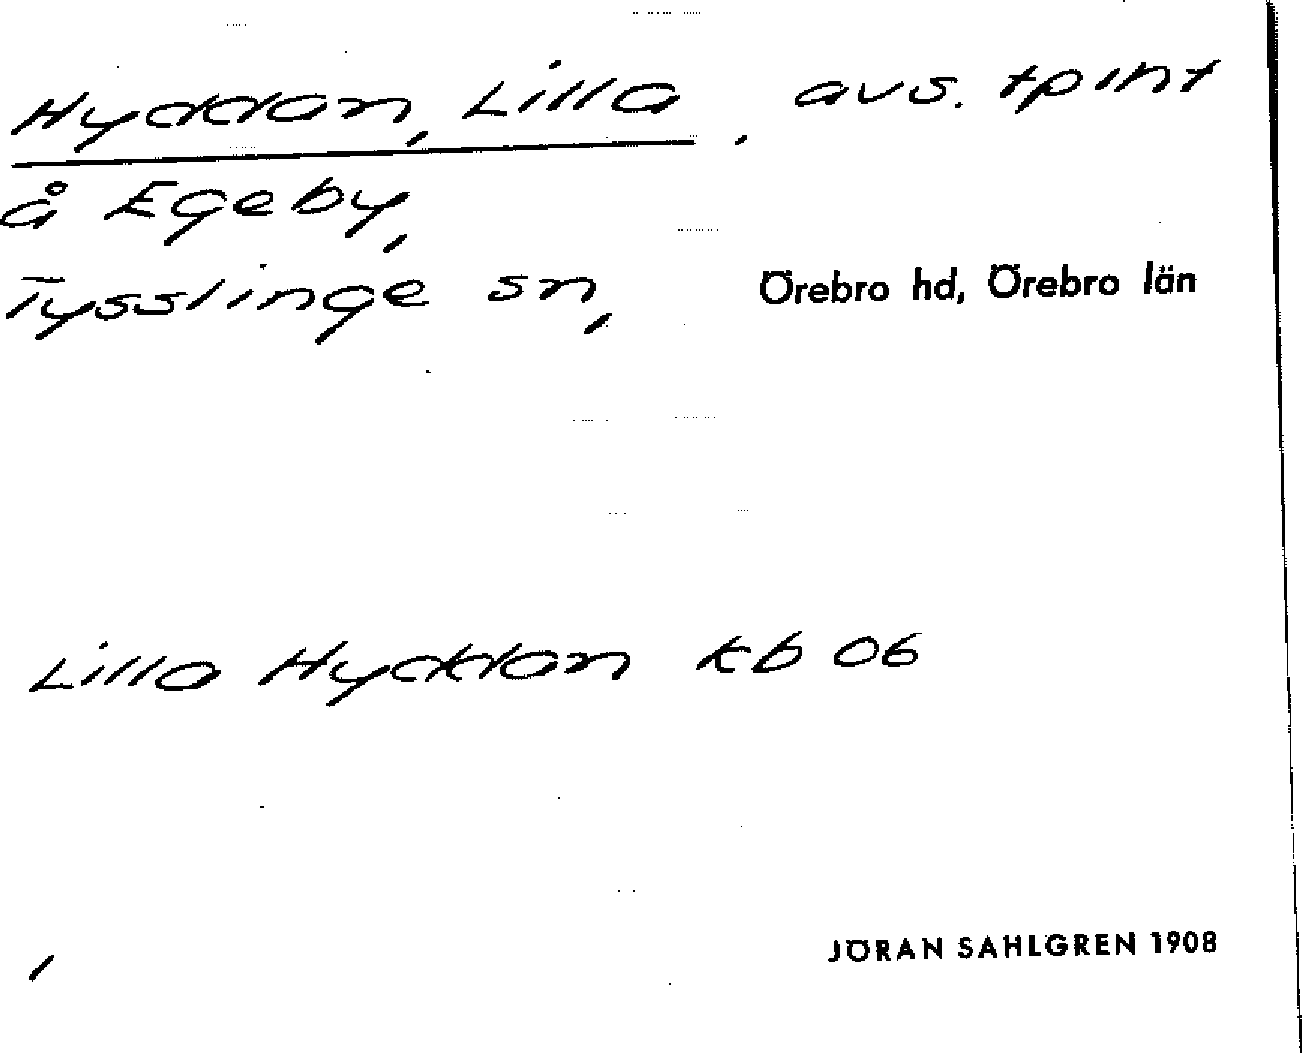 Hyddan, Lilla, avs. tpint
å Egeby,
Tysslinge sn, Örebro hd, Örebro län
Lilla Hyddan kb 06
JÖRAN SAHLGREN 1908